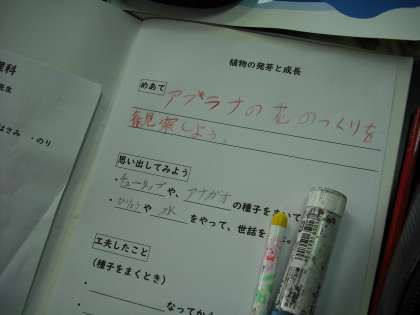 植物の発芽と成長
めあて アブラナの花のつくりを
観察しよう。
思い出してみよう
・チューリップや、アサガオの種子をまいて
・ひりょうや水をやって、世話を
工夫したこと
(種子をまくとき)
・なってか
理科
先生
はさみ ・のり